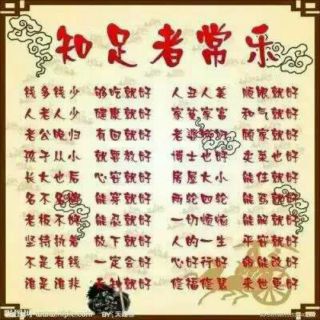 知足者常乐
钱多钱少 够吃就好 人丑人美 顺眼就好
人老人少 健康就好 家穷家富 和气就好
老公晚归 有回就好 老婆 顾家就好
孩子从小 就要教好 博士也好 卖菜也好
长大也后 心安就好 房屋大小 能住就好
名不名牌 能穿就好 两轮四轮 能驾就好
老板不好 能忍就好 一切烦恼 能解就好
坚持执着 放下就好 人的一生 平安就好
不是有钱 一定会好 心好行好 命能改好
谁是谁非 天知就好 修福修慧 来世更好